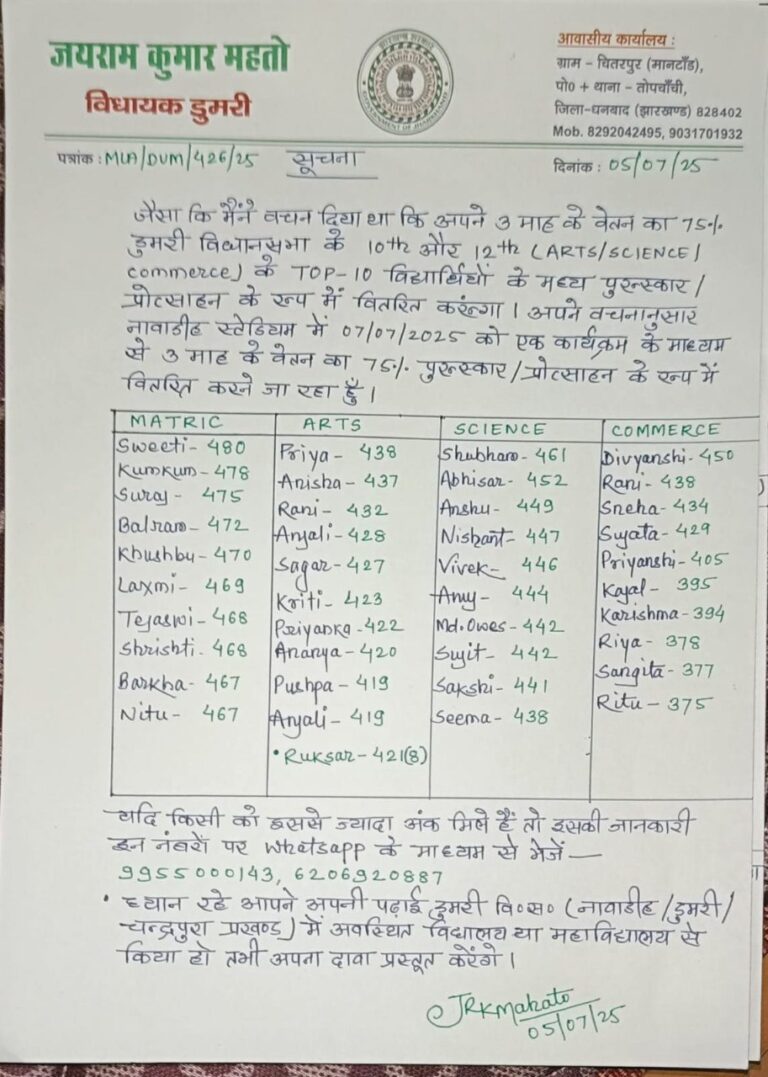 जयराम कुमार महतो
विधायक डुमरी
आवासीय कार्यालय :
ग्राम – चितरपुर (मानटाँड),
पो० + थाना – तोपचाँची,
जिला-धनबाद (झारखण्ड) 828402
Mob. 8292042495, 9031701932
पत्रांक : MLA/DUM/426/25
सूचना
दिनांक : 05/07/25
जैसा कि मैंने वचन दिया था कि अपने 3 माह के वेतन का 75%
डुमरी विधानसभा के 10th और 12th (ARTS/SCIENCE/
commerce) के TOP-10 विद्यार्थियों के मध्य पुरुस्कार/
प्रोत्साहन के रूप में वितरित करूंगा । अपने वचनानुसार
नावाडीह स्टेडियम में 07/07/2025 को एक कार्यक्रम के माध्यम
से 3 माह के वेतन का 75% पुरुस्कार/प्रोत्साहन के रूप में
वितरित करने जा रहा हूँ ।
MATRIC
Sweeti- 480
Kumkum- 478
Suraj - 475
Balram- 472
Khushbu- 470
Laxmi- 469
Tejaswi- 468
Shrishti- 468
Barkha- 467
Nitu- 467
ARTS
Priya- 438
Anisha- 437
Rani- 432
Anjali- 428
Sagar- 427
Kriti- 423
Priyanka- 422
Ananya- 420
Pushpa- 419
Anjali- 419
• Ruksar- 421(8)
SCIENCE
Shubham- 461
Abhisar- 452
Anshu- 449
Nishant- 447
Vivek- 446
Anuj- 444
Md. Owes- 442
Sujit- 442
Sakshi- 441
Seema- 438
COMMERCE
Divyanshi- 450
Rani- 438
Sneha- 434
Sujata- 429
Priyanshi- 405
Kajal- 395
Karishma- 394
Riya- 378
Sangita- 377
Ritu- 375
यदि किसी को इससे ज्यादा अंक मिले हैं तो इसकी जानकारी
इन नंबरों पर Whatsapp के माध्यम से भेजें —
9955000143, 6206920887
• ध्यान रहे आपने अपनी पढ़ाई डुमरी वि०स० (नावाडीह/डुमरी/
चन्द्रपुरा प्रखण्ड) में अवस्थित विद्यालय या महाविद्यालय से
किया हो तभी अपना दावा प्रस्तूत करेंगे ।
JRKMahato
05/07/25